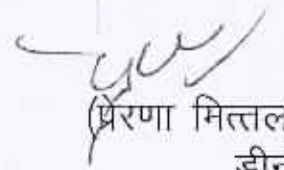 (प्रेरणा मित्तल
डीन